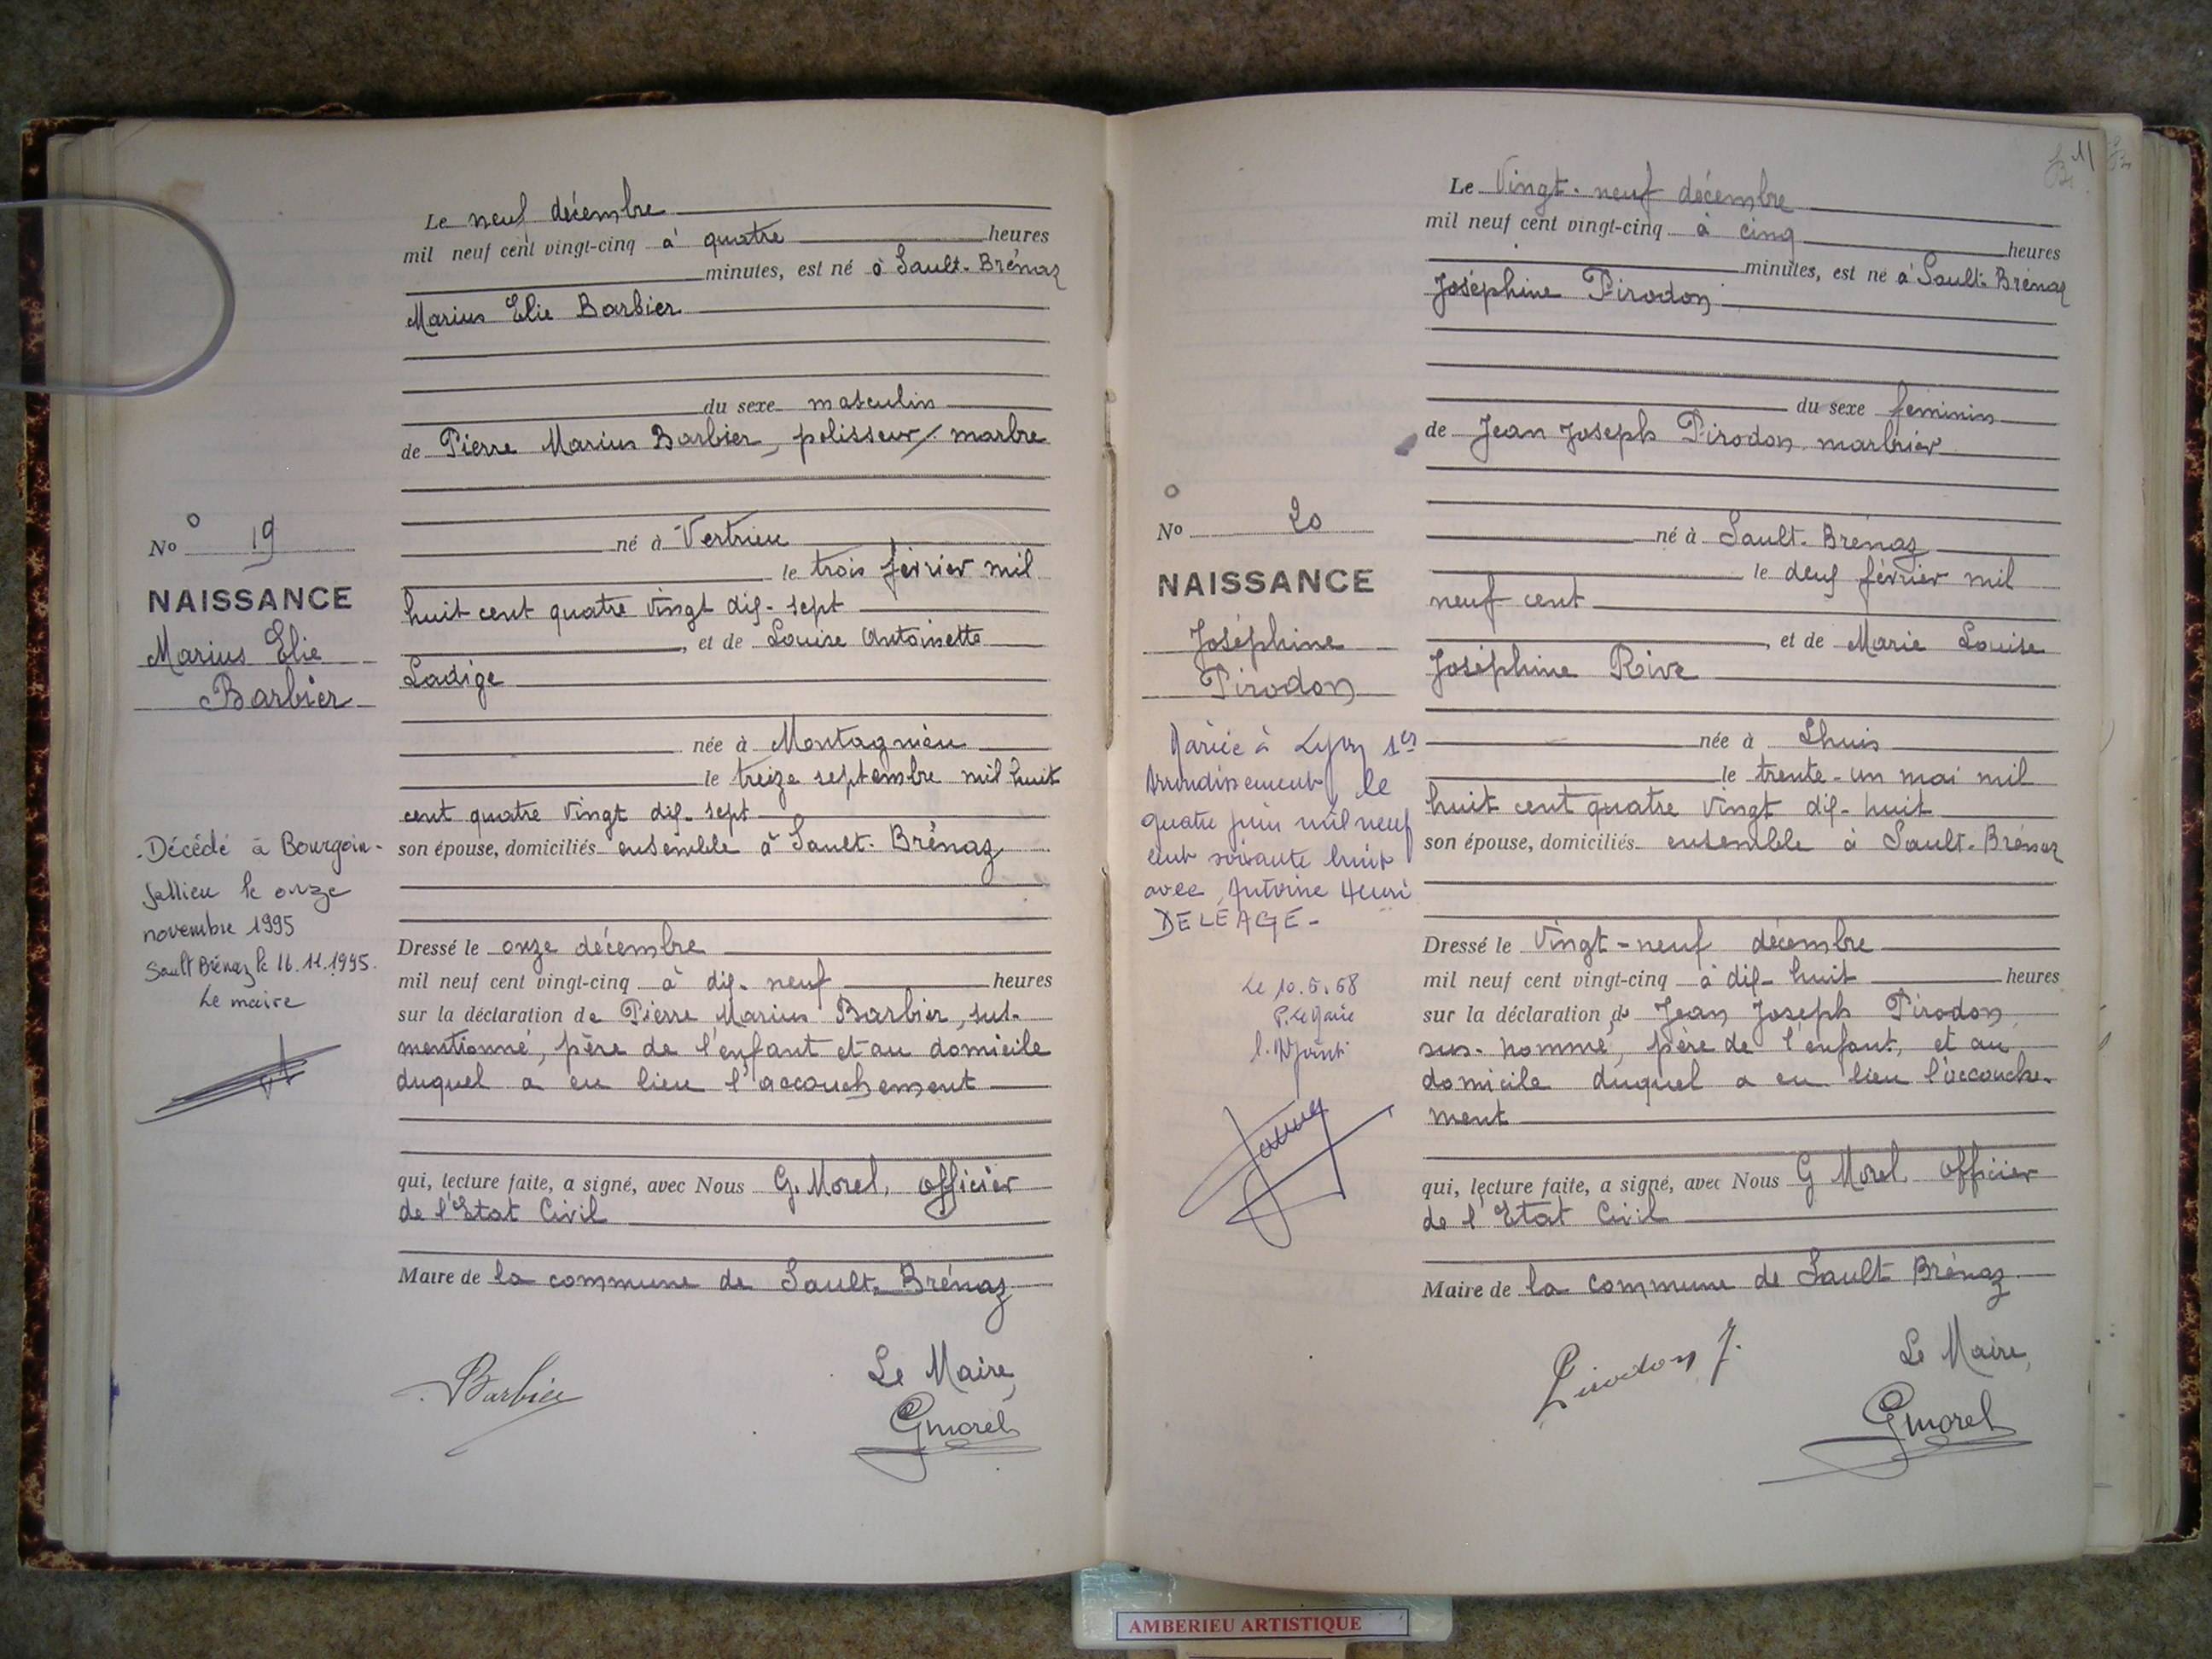 Le neuf décembre
mil neuf cent vingt-cinq à quatre heures
minutes, est né à Sault-Brénaz
Marius Elie Barbier
du sexe masculin
de Pierre Marius Barbier, polisseur/marbre
né à Vertrieu
le trois février mil
huit cent quatre vingt dix-sept
, et de Louise Antoinette
Ladige
née à Montagnieu
le treize septembre mil huit
cent quatre vingt dix-sept
son épouse, domiciliés ensemble à Sault-Brénaz
Dressé le onze décembre
mil neuf cent vingt-cinq à dix-neuf heures
sur la déclaration de Pierre Marius Barbier, sus-
mentionné, père de l'enfant et au domicile
duquel a eu lieu l'accouchement
qui, lecture faite, a signé, avec Nous G. Morel, officier
de l'Etat Civil
Maire de la commune de Sault-Brénaz
Barbier
Le Maire,
GMorel
No 19
NAISSANCE
Marius Elie
Barbier
Décédé à Bourgoin-
Jallieu le onze
novembre 1995
Sault Brénaz le 16.11.1995.
Le maire
11
Le Vingt-neuf décembre
mil neuf cent vingt-cinq à cinq heures
minutes, est né à Sault-Brénaz
Joséphine Pirodon
du sexe féminin
de Jean Joseph Pirodon marbrier
né à Sault-Brénaz
le deux février mil
neuf cent
, et de Marie Louise
Joséphine Rive
née à Lhuis
le trente-un mai mil
huit cent quatre vingt dix-huit
son épouse, domiciliés ensemble à Sault-Brénaz
Dressé le Vingt-neuf décembre
mil neuf cent vingt-cinq à dix-huit heures
sur la déclaration de Jean Joseph Pirodon
sus-nommé, père de l'enfant, et au
domicile duquel a eu lieu l'accouche-
ment
qui, lecture faite, a signé, avec Nous G Morel officier
de l'Etat Civil
Maire de la commune de Sault Brénaz
Pirodon J.
Le Maire,
GMorel
No 20
NAISSANCE
Joséphine
Pirodon
Mariée à Lyon 1er
Arrondissement le
quatre juin mil neuf
cent soixante huit
avec Antoine Henri
DELÉAGE-
Le 10.6.68
P. Le Maire
l'Adjoint
AMBERIEU ARTISTIQUE